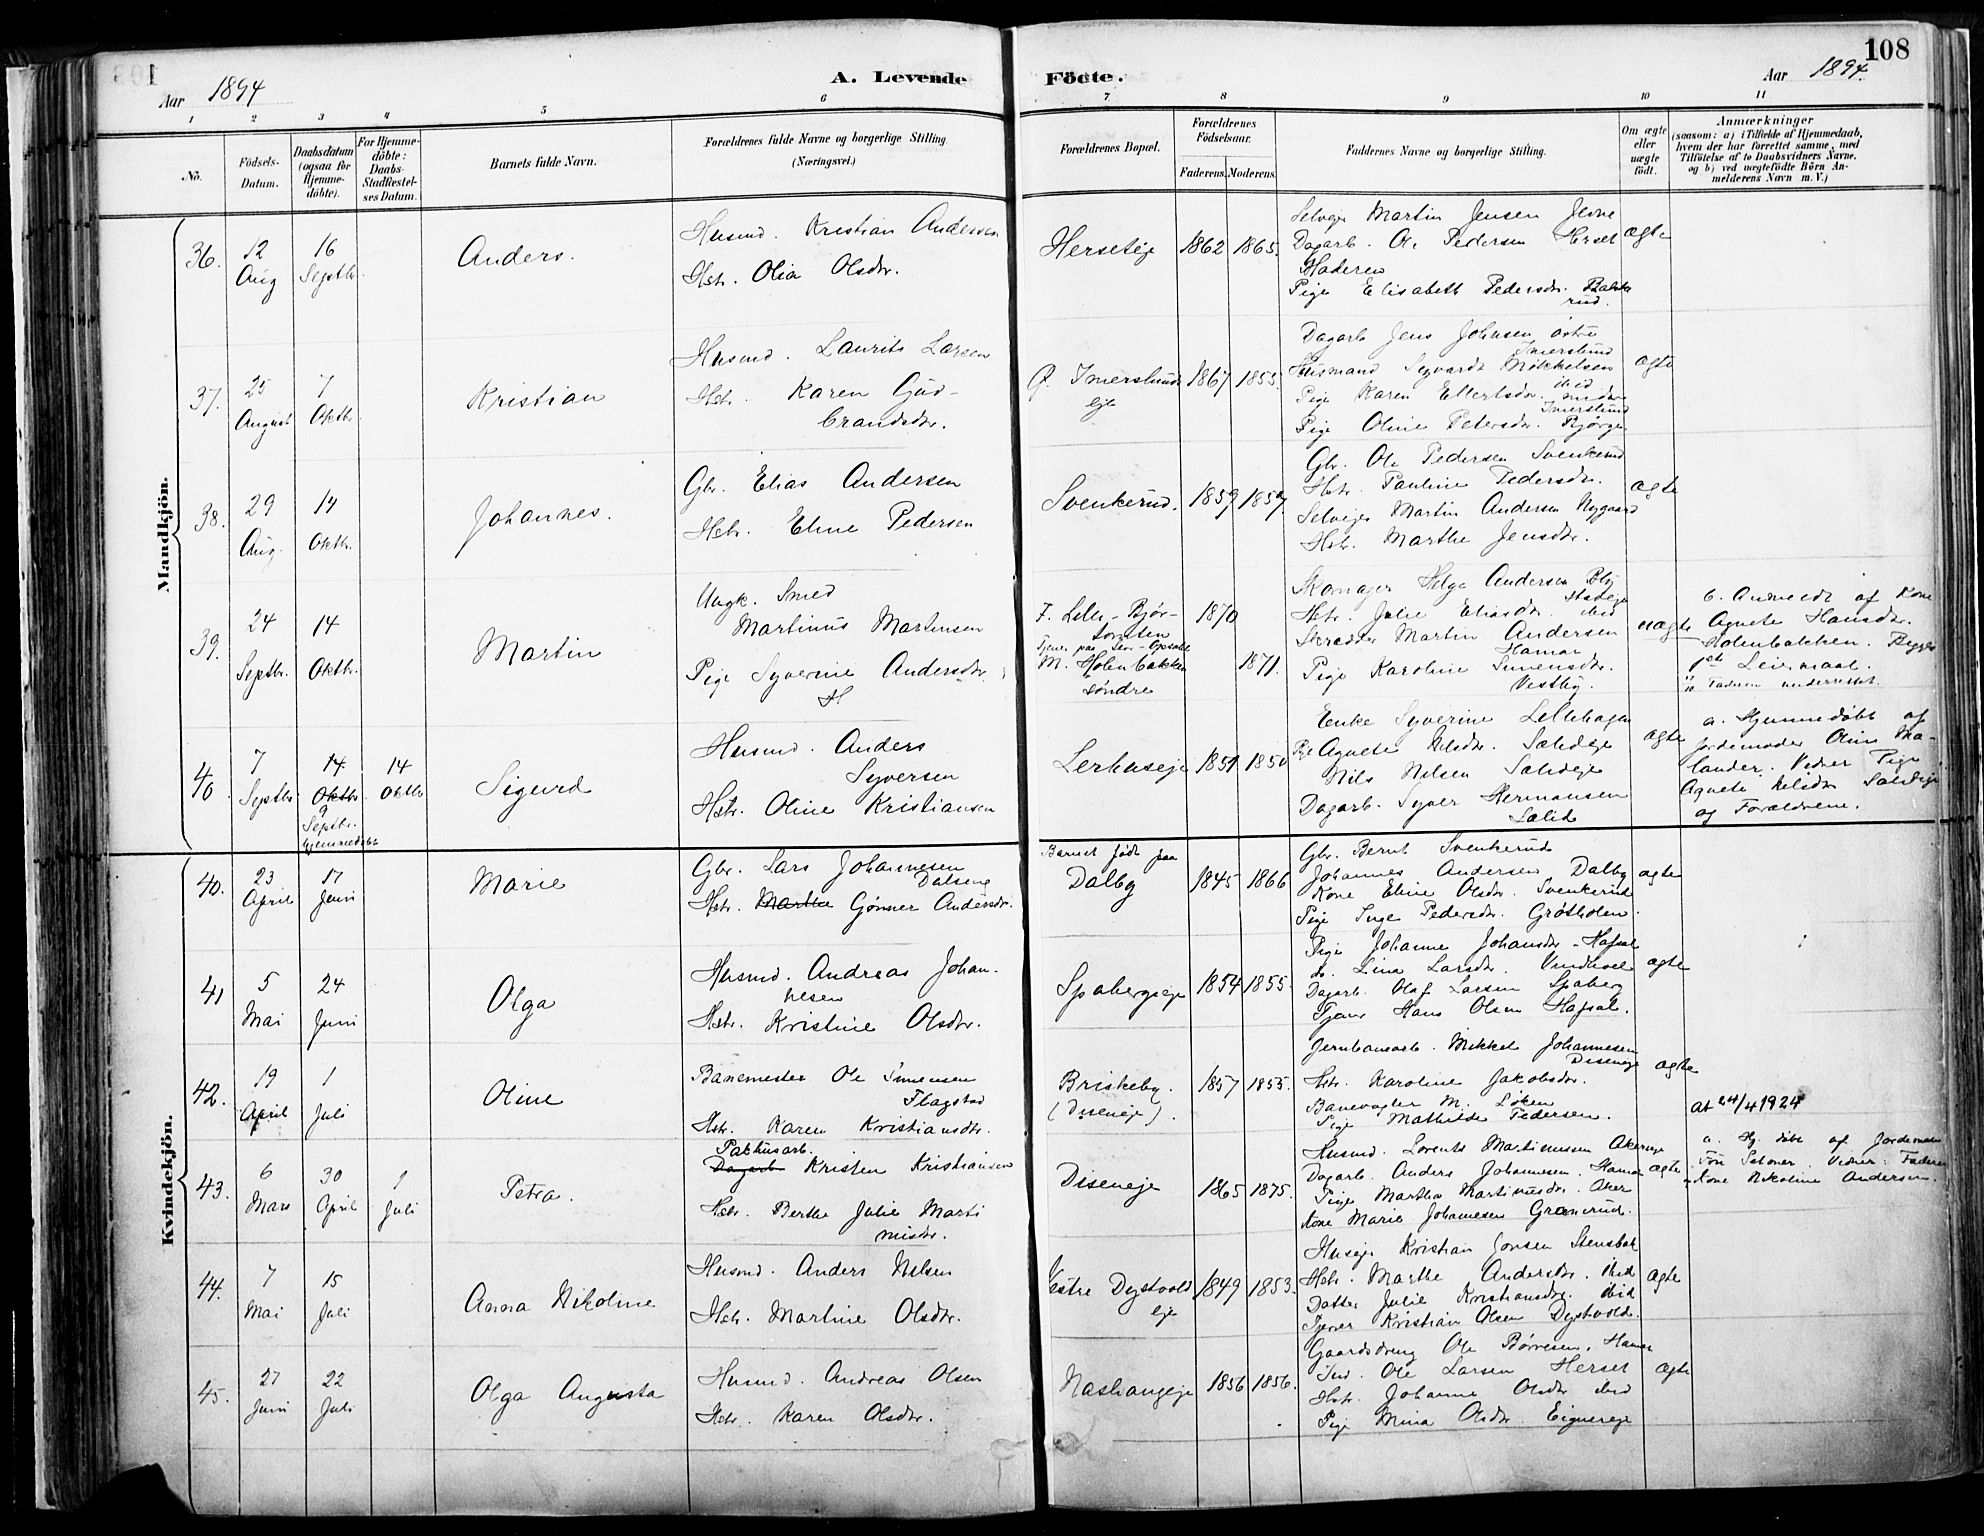 108
Aar 1894
A. Levende Födte.
Aar 1894.
1 2 3 4 5 6 7 8 9 10 11
No.
Födsels-
Datum.
Daabsdatum
(ogsaa for
Hjemme-
döbte).
For Hjemme-
döbte:
Daabs-
Stadfæstel-
ses Datum.
Barnets fulde Navn.
Forældrenes fulde Navne og borgerlige Stilling
(Næringsvei.)
Forældrenes Bopæl.
Forældrenes
Födselsaar.
Faderens. Moderens.
Faddernes Navne og borgerlige Stilling.
Om ægte
eller
uægte
födt.
Anmærkninger
(saasom: a) i Tilfælde af Hjemmedaab,
hvem der har forrettet samme, med
Tilföielse af to Daabsvidners Navne,
og b) ved uægtefödte Börn An-
melderens Navn m. V.)
Mandkjön.
36.
12
Aug
16
Septbr.
Anders.
Husmd. Kristian Andersen
Hstr. Olia Olsdtr.
Herseteje
1862 1865.
Selvejer Martin Jensen Jevne
Dagarb. Ole Pedersen Herset
Faderen
Pige Elisabeth Pedersdtr.
ægte
37.
25
August
7
Oktbr.
Kristian
Husmd. Laurits Larsen
Hstr. Karen Gud-
brandsdtr.
Ø. Imerslunds
eje
1867 1855.
Dagarb Jens Johnsen østre
Imerslund
Husmand Syvardt Mikkelsen
ibid
Pige Karen Ellertsdtr. nedre
Imerslund
Pige Oline Petersdtr. Bjørge
ægte
38.
29
Aug.
14
Oktbr.
Johannes.
Gbr. Elias Andersen
Hstr. Eline Pedersen
Svenkerud.
1859 1857
Gbr. Ole Pedersen Svenkerud
Hstr. Pauline Pedersdtr.
Selvejer Martin Andersen Nygaard
Hstr. Marthe Jensdtr.
ægte
39.
24
Septbr.
14
Oktbr.
Martin
Ungk. Smed
Martinus Martinsen
Pige Syverine Andersdtr
F. Lille-Bjør-
tomten
M. Holenbakken
søndre
1870
1871.
Skomager Helge Andersen
Hstr. Julie Eliasdtr. ibid
Skrædder Martin Andersen
Hamar
Pige Karoline Simensdtr.
Vestby.
uægte
b. Anmeldt af Kone
Agnete Hansdtr.
Holenbakken. Begges
1ste Leiermaal.
Faderen underrettet.
40
7
Septbr
14
Oktbr
9
Septbr.
hjemmedøbt
14
Oktbr
Sigurd
Husmd. Anders
Syversen
Hstr. Oline Kristiansen
Lerhuseje
1851 1850
Enke Syverine Lillehagen
Pige Agnete Nilsdtr. Salideje
Nils Nilsen Salideje
Dagarb. Syver Hermansen
Salid
ægte
a. Hjemmedøbt af
Jordemoder Oline Ma-
lander. Vidner Pige
Agnete Nilsdtr Salideje
og Forældrene.
Kvindekjön.
40.
23
April
17
Juni
Marie
Gbr. Lars Johannesen
Dalseng
Hstr. Marthe Gönner Andersdtr.
Barnet født paa
Dalby
1845 1866
Gbr. Bernt Svenkerud
Johannes Andersen Dalby
Kone Eline Olsdtr. Svenkerud
Pige Inge Pedersdtr. Grøtholen.
ægte
41
5
Mai
24
Juni
Olga
Husmd. Andreas Johan-
nesen
Hstr. Kristine Olsdtr.
Spabergseje
1854 1855.
Pige Johanne Johansdtr - Hafsal
do. Lina Larsdtr.
Dagarb. Olaf Larsen Spaberg
Tjener Hans Olsen Hafsal.
ægte
42.
19
April
1
Juli
Oline
Banemester Ole Simensen
Flagstad
Hstr. Karen Kristiansdtr.
Briskeby.
(Diseneje).
1857 1855.
Jernbanearb. Mikkel Johannesen
Diseneje
Hstr. Karoline Jakobsdtr.
Banevogter M. Løken
Pige Mathilde Pedersen.
ægte
at 24/4 1924
43.
6
Mars
30
April
1
Juli
Petra.
Pakhusarb.
Dagarb Kristen Kristiansen
Hstr. Berthe Julie Marti
nusdtr.
Diseneje
1865 1875.
Husmd. Lorents Martinusen Akerseje
Dagarb. Anders Johannesen. Hamar
Pige Marthe Martinusdtr. Aker
Kone Marie Johannesen Granerud.
ægte
a. Hj. døbt af Jordemoder
Vidner: Faderen
Kone Nikoline Andersen.
44.
7
Mai
15
Juli
Anna Nikoline
Husmd. Anders Nilsen
Hstr. Martine Olsdtr.
Vestre Dystvold
eje
1849 1853.
Huseje Kristian Jonsen Stensbak
Hstr. Marthe Andersdtr. ibid
Datter Julie Kristiansdtr. ibid
Tjener Kristian Olsen Dystvold.
ægte
45.
27
Juni
22
Juli
Olga Augusta
Husmd. Andreas Olsen
Hstr. Karen Olsdtr.
Nashaugeje
1856 1856.
Gaardsdreng Ole Børresen, Hamar
Ind. Ole Larsen Herset
Hstr. Johanne Olsdtr ibid
Pige Mina Olsdtr. Eignereje
ægte